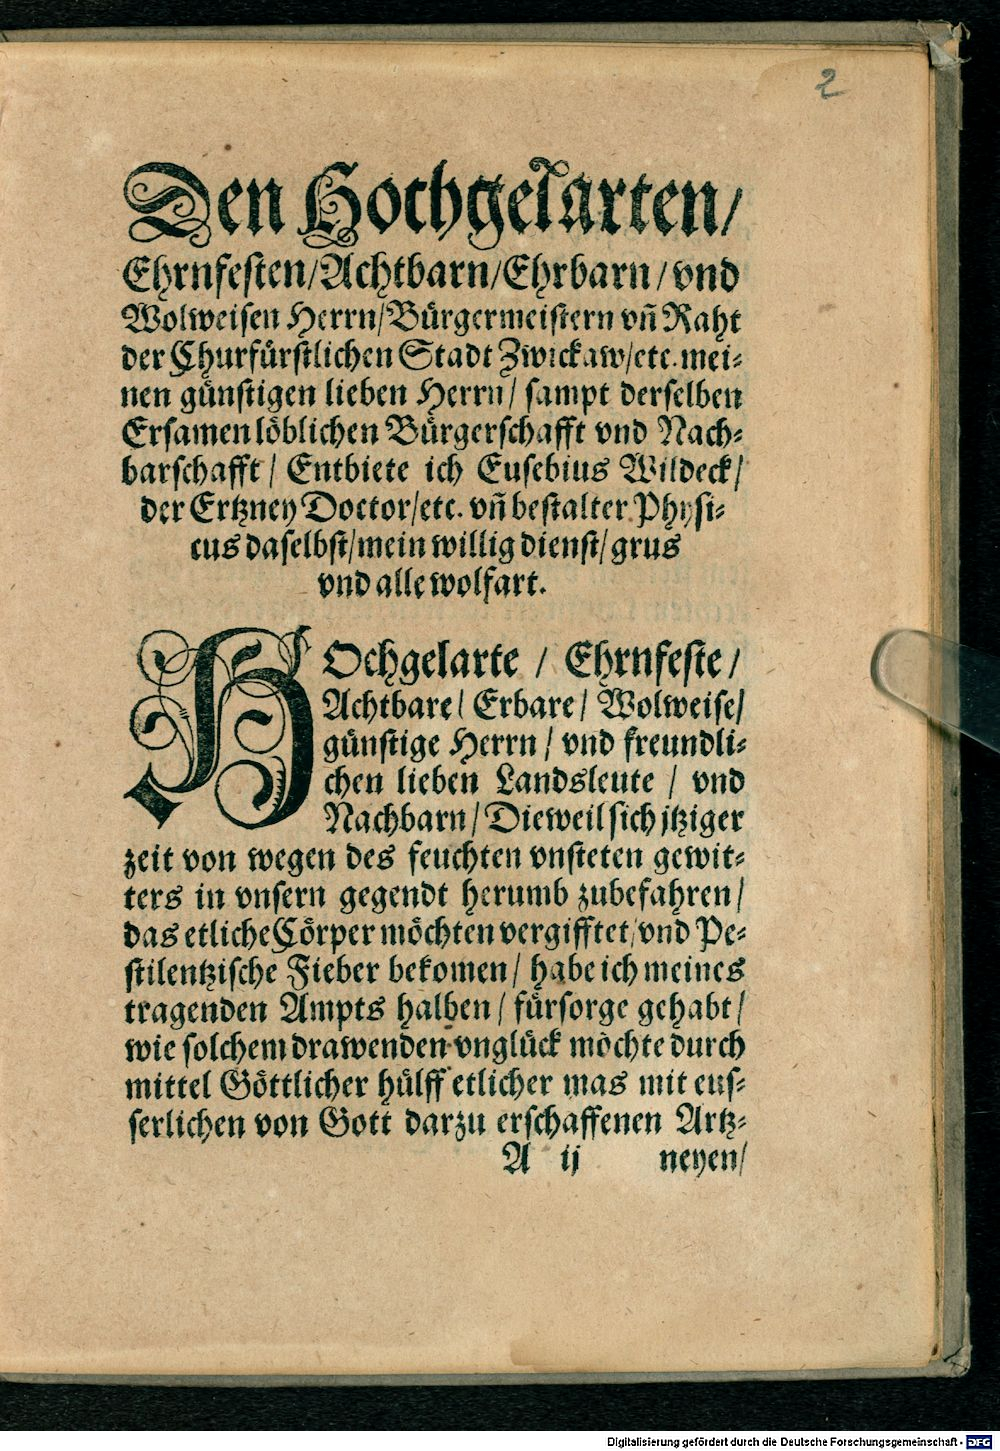 2
Den Hochgelarten/
Ehrnfesten/Achtbarn/Ehrbarn/vnd
Wolweisen Herrn/Bürgermeistern vñ Raht
der Churfürstlichen Stadt Zwickaw/etc. mei-
nen günstigen lieben Herrn/ sampt derselben
Ersamen löblichen Bürgerschafft vnd Nach-
barschafft/ Entbiete ich Eusebius Wildeck/
der Ertzney Doctor/etc. vñ bestalter Physi-
cus daselbst/mein willig dienst/grus
vnd alle wolfart.
HOchgelarte / Ehrnfeste/
Achtbare/ Erbare/ Wolweise/
günstige Herrn/ vnd freundli-
chen lieben Landsleute / vnd
Nachbarn/ Dieweil sich jtziger
zeit von wegen des feuchten vnsteten gewit-
ters in vnsern gegendt herumb zubefahren/
das etliche Cörper möchten vergifftet/vnd Pe-
stilentzische Fieber bekomen/ habe ich meines
tragenden Ampts halben/ fürsorge gehabt/
wie solchem drawenden vnglück möchte durch
mittel Göttlicher hülff etlicher mas mit eus-
serlichen von Gott darzu erschaffenen Artz-
A ij neyen/
Digitalisierung gefördert durch die Deutsche Forschungsgemeinschaft - DFG